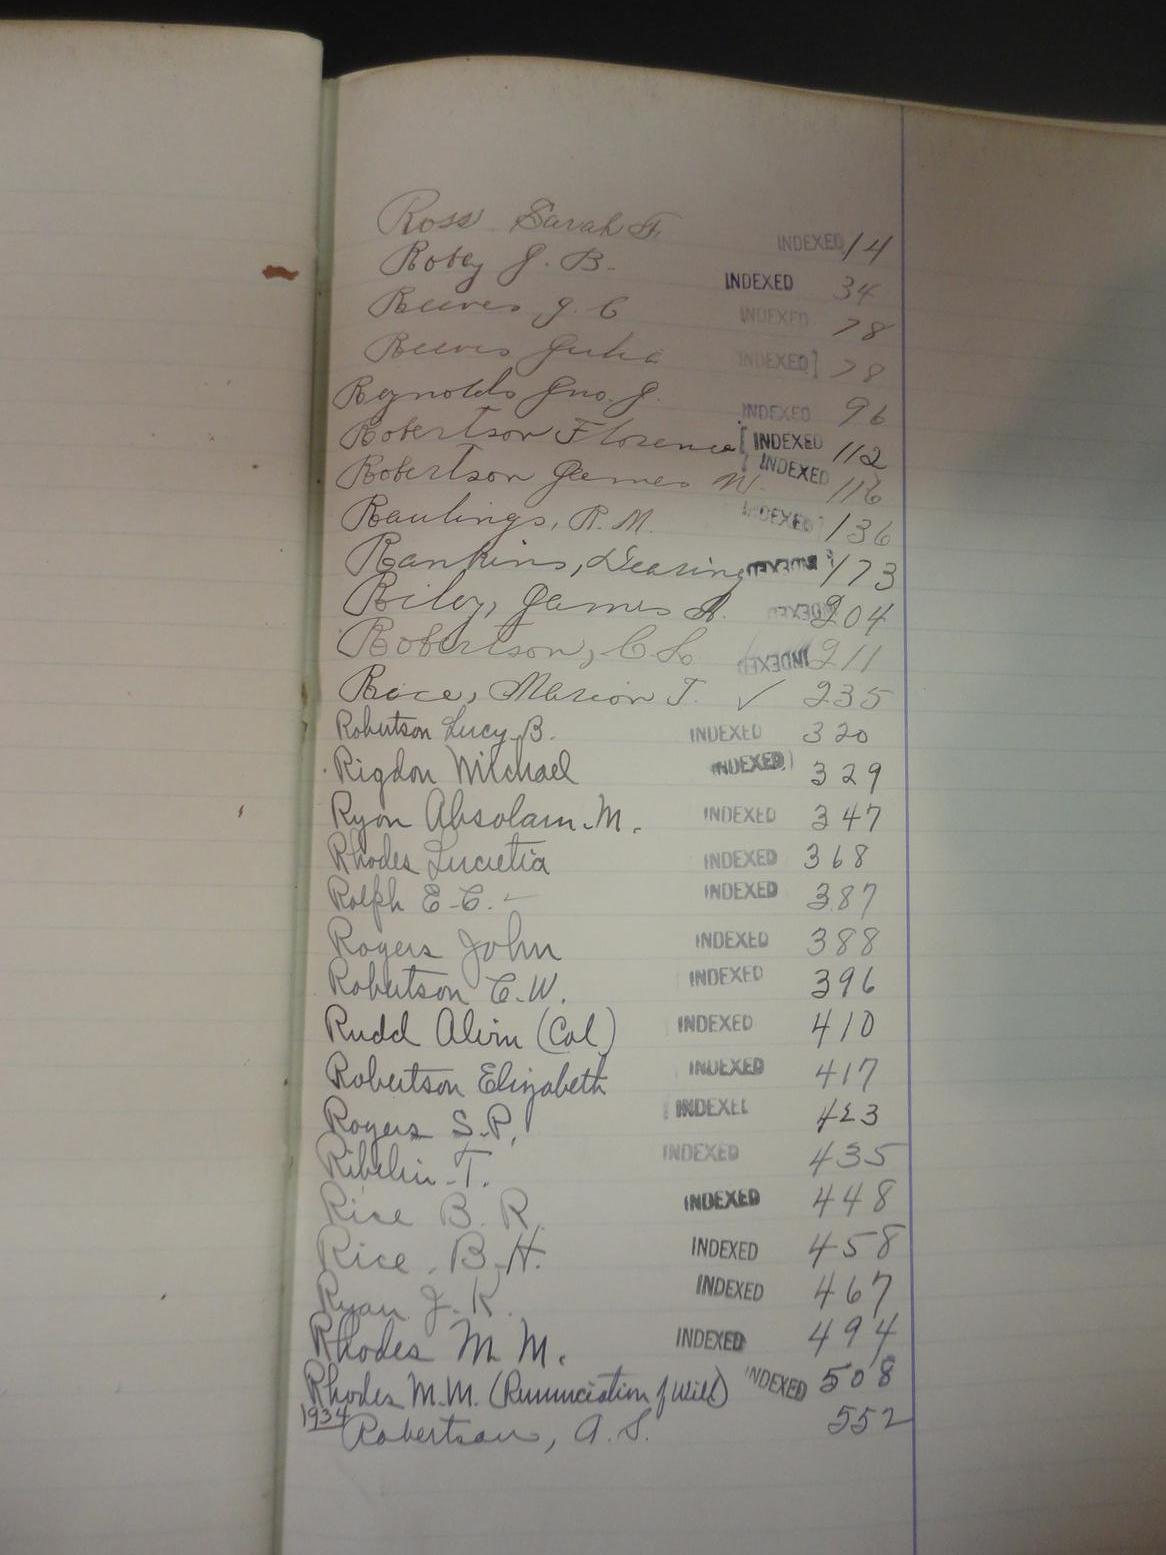 Ross Sarah F. INDEXED 14
Robey J. B. INDEXED 34
Reeves J. C INDEXED 78
Reeves Julia INDEXED 78
Reynolds Jno. J. INDEXED 96
Robertson Florence INDEXED 112
Robertson James W. INDEXED 116
Raulings, R. M. INDEXED 136
Rankins, Dearing INDEXED 173
Riley, James A. INDEXED 204
Robertson, C L. INDEXED 211
Race, Marion T. ✓ 235
Robertson Lucy B. INDEXED 320
Rigdon Michael INDEXED 329
Ryon Absolam. M. INDEXED 347
Rhodes Lucretia INDEXED 368
Rolph E. C. INDEXED 387
Rogers John INDEXED 388
Robertson C. W. INDEXED 396
Rudd Alvin (Col) INDEXED 410
Robertson Elizabeth INDEXED 417
Rogers S. P. INDEXED 423
Ribelin T. INDEXED 435
Rice B. R. INDEXED 448
Rice. B. H. INDEXED 458
Ryan J. K. INDEXED 467
Rhodes M. M. INDEXED 494
Rhodes M. M. (Renunciation of Will) INDEXED 508
1934 Robertson, A. S. 552